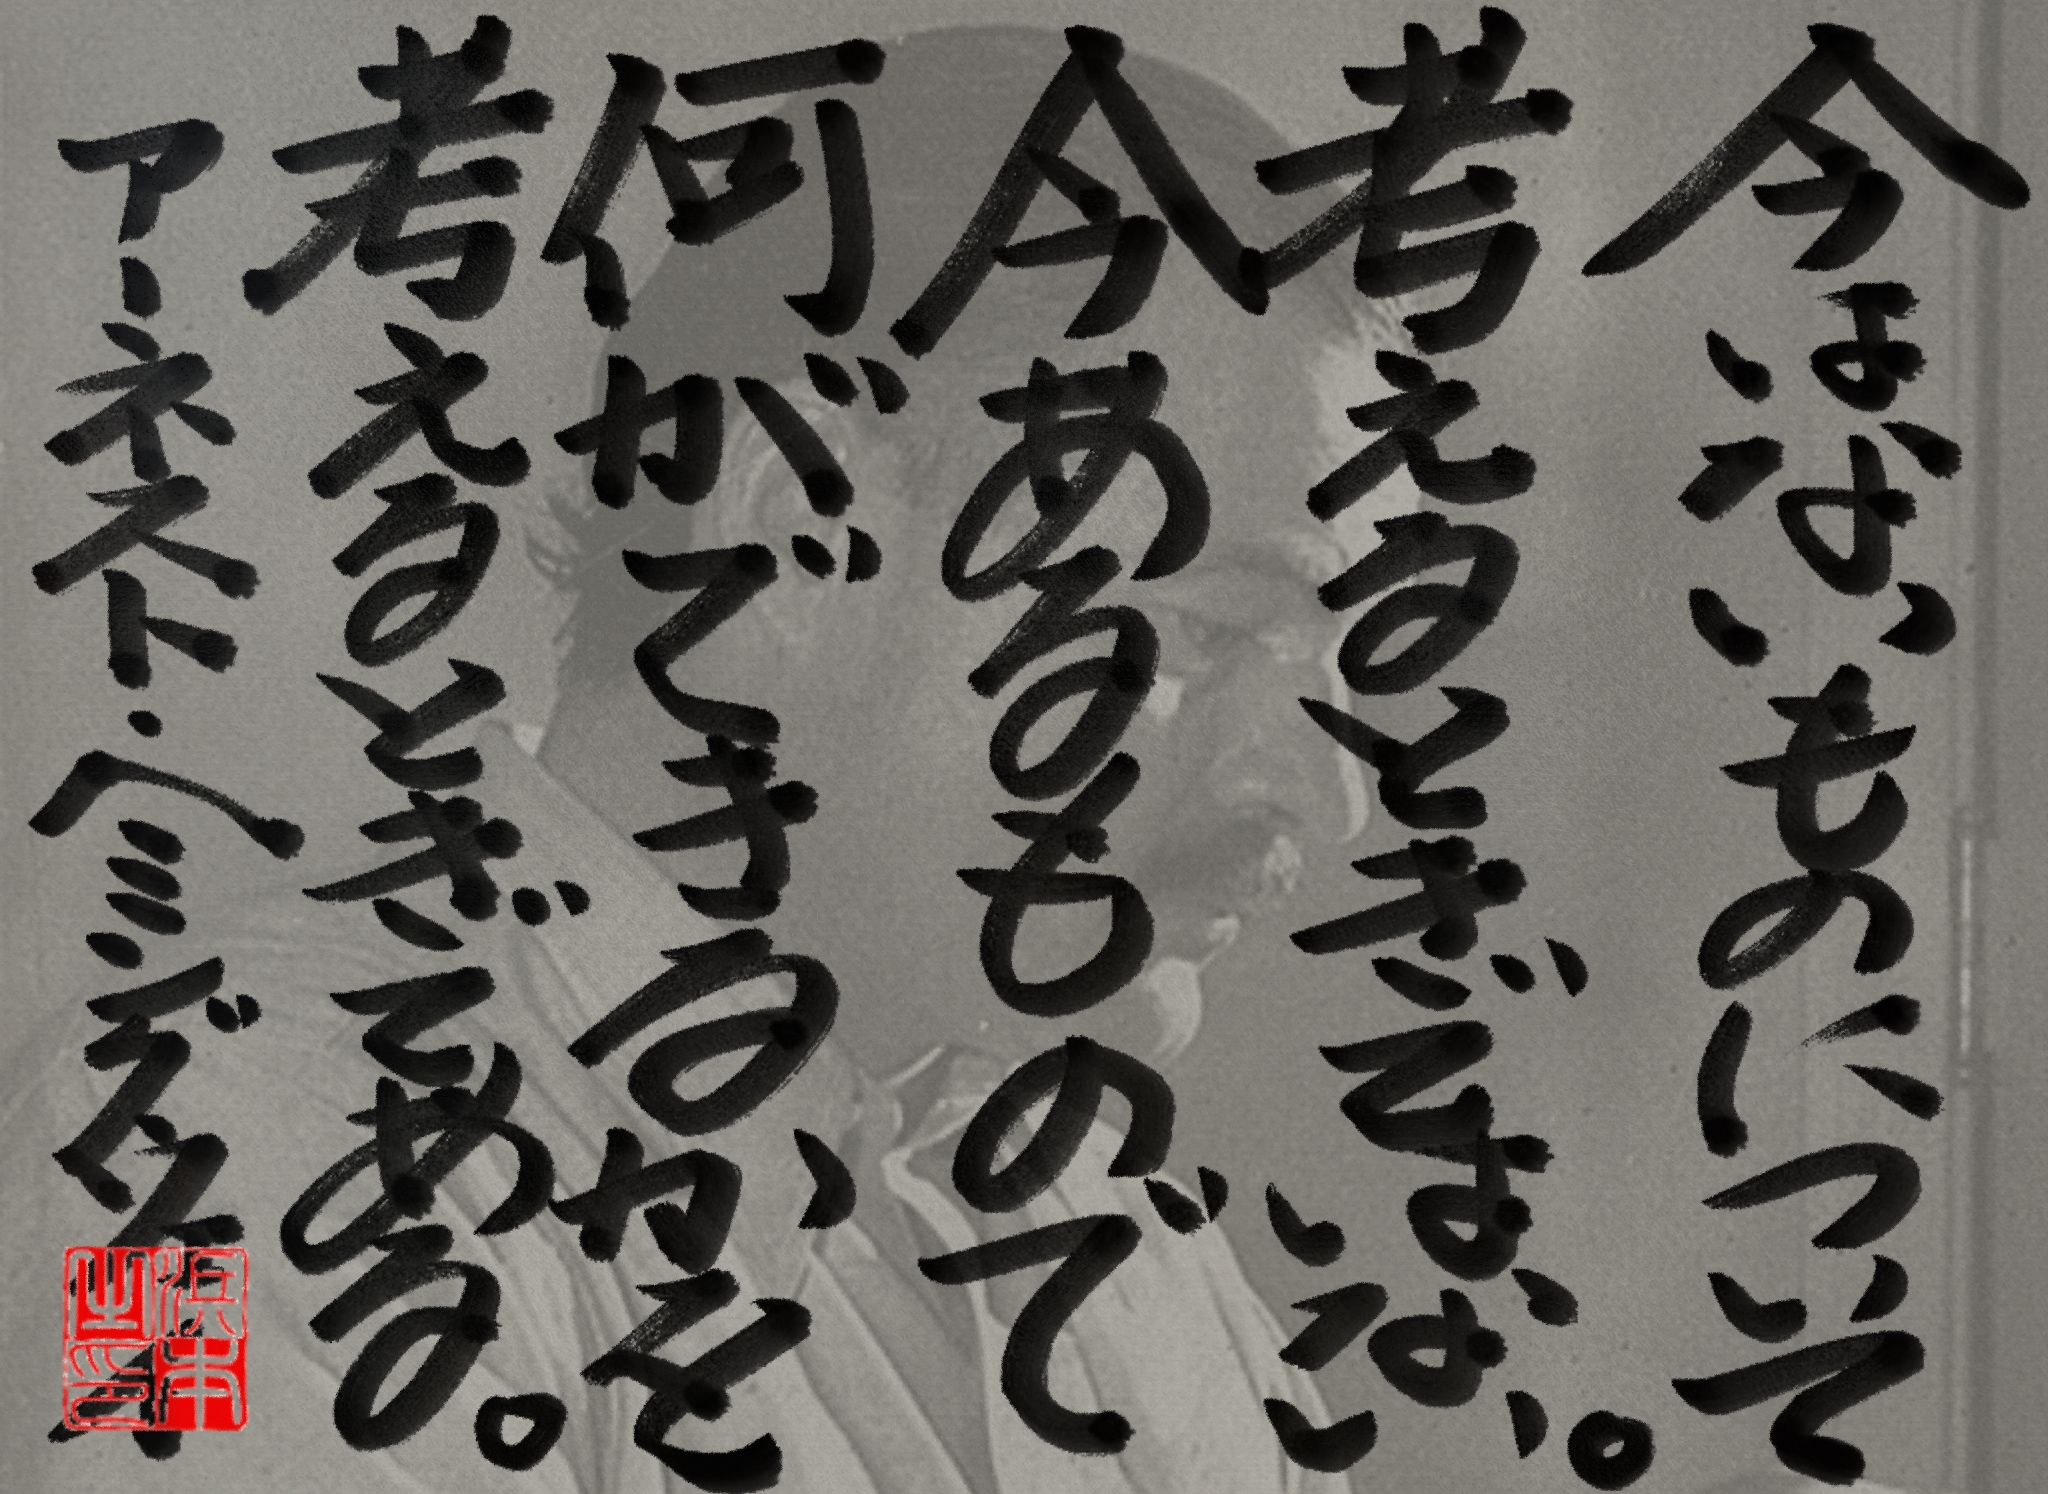 今はないものについて
考えるときではない。
今あるもので
何ができるかを
考えるときである。
アーネスト・ヘミングウェイ
浜本之印